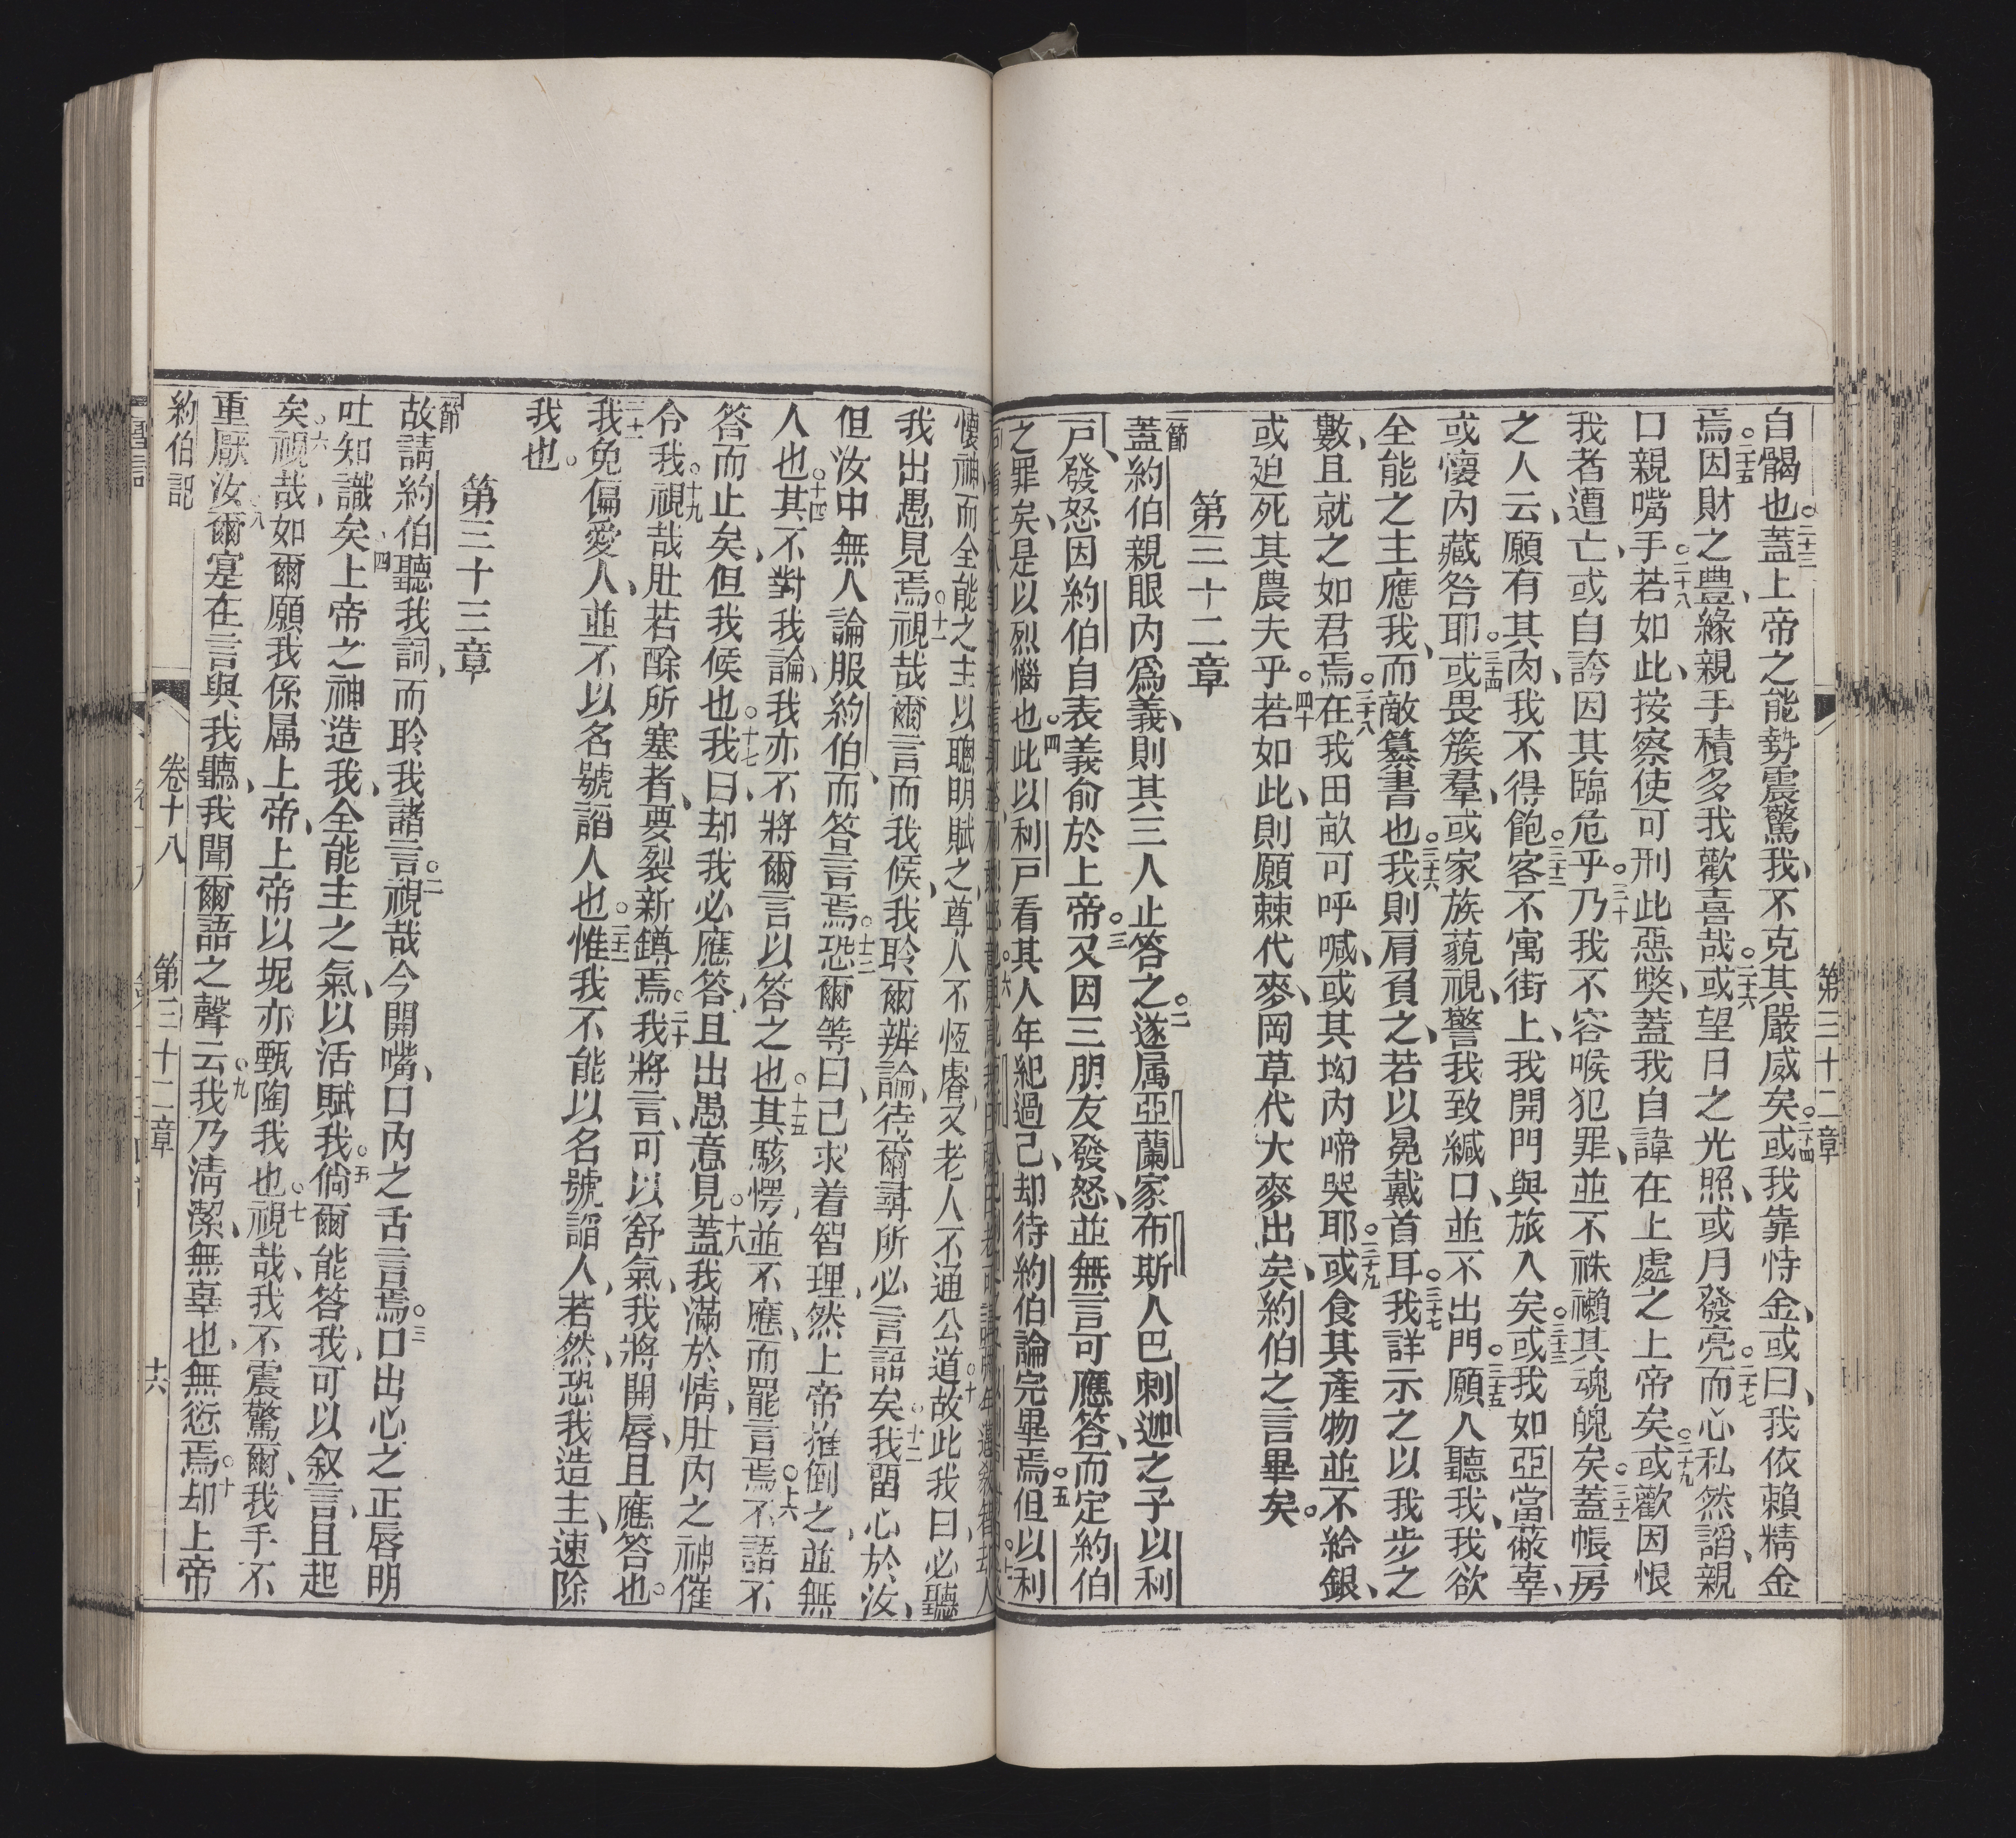 第三十二章
自髑也。二十三蓋上帝之能勢震驚我、不克其嚴威矣。二十四或我靠恃金、或曰、我依賴精金
焉。二十五因財之豊、緣親手積多我歡喜哉。二十六或望日之光照、或月發亮。二十七而心私然謟、親
口親嘴手。二十八若如此、按察使可刑此惡獘、蓋我自諱在上處之上帝矣。二十九或歡因恨
我者遭亡、或自誇因其臨危乎。三十乃我不容喉犯罪、並不袾襰其魂魄矣。三十一蓋帳房
之人云、願有其肉、我不得飽。三十二客不寓街上、我開門與旅人矣。三十三或我如亞當蔽辜、
或懷內藏咎耶。三十四或畏簇羣、或家族藐視、警我致緘口、並不出門。三十五願人聽我、我欲
全能之主應我、而敵纂書也。三十六我則肩負之、若以冕戴首耳。三十七我詳示之以我步之
數、且就之如君焉。三十八在我田畝可呼喊、或其坳內啼哭耶。三十九或食其產物並不給銀、
或廹死其農夫乎。四十若如此、則願棘代麥、岡草代大麥出矣、約伯之言畢矣。
第三十二章
一節蓋約伯親眼內爲義、則其三人止答之。二遂属亞蘭家布斯人巴剌迦之子以利
戸、發怒因約伯自表義俞於上帝。三又因三朋友發怒、並無言可應答、而定約伯
之罪矣、是以烈惱也。四此以利戸看其人年紀過己、却待約伯論完畢焉。五但以利
懷神、而全能之主以聰明賦之、尊人不恆睿、又老人不通公道。十故此我曰、必聽
我出愚見焉。十一視哉爾言而我候、我聆爾辨論、待爾尋所必言語矣。十二我畱心於汝、
但汝中無人論服約伯、而答言焉。十三恐爾等曰、己求着智理、然上帝推倒之、並無
人也。十四其不對我論、我亦不將爾言以答之也。十五其駭愕、並不應、而罷言焉。十六不語不
答而止矣、但我候也。十七我曰、却我必應答、且出愚意見。十八蓋我滿於情、肚內之神催
令我。十九視哉肚若酴所塞者、要裂新鐏焉。二十我將言、可以舒氣、我將開唇、且應答也。
二十一我免偏愛人、並不以名號謟人也。二十二惟我不能以名號謟人、若然、恐我造主、速除
我也。
第三十三章
一節故請約伯聽我詞、而聆我諸言。二視哉今開嘴、口內之舌言焉。三口出心之正唇明
吐知識矣。四上帝之神造我、全能主之氣、以活賦我。五倘爾能答我、可以叙言、且起
矣。六視哉、如爾願我係属上帝、上帝以坭亦甄陶我也。七視哉、我不震驚爾、我手不
重厭汝。八爾寔在言與我聽、我聞爾語之聲云。九我乃淸潔、無辜也、無愆焉。十却上帝
約伯記 卷十八 第三十二章 十六